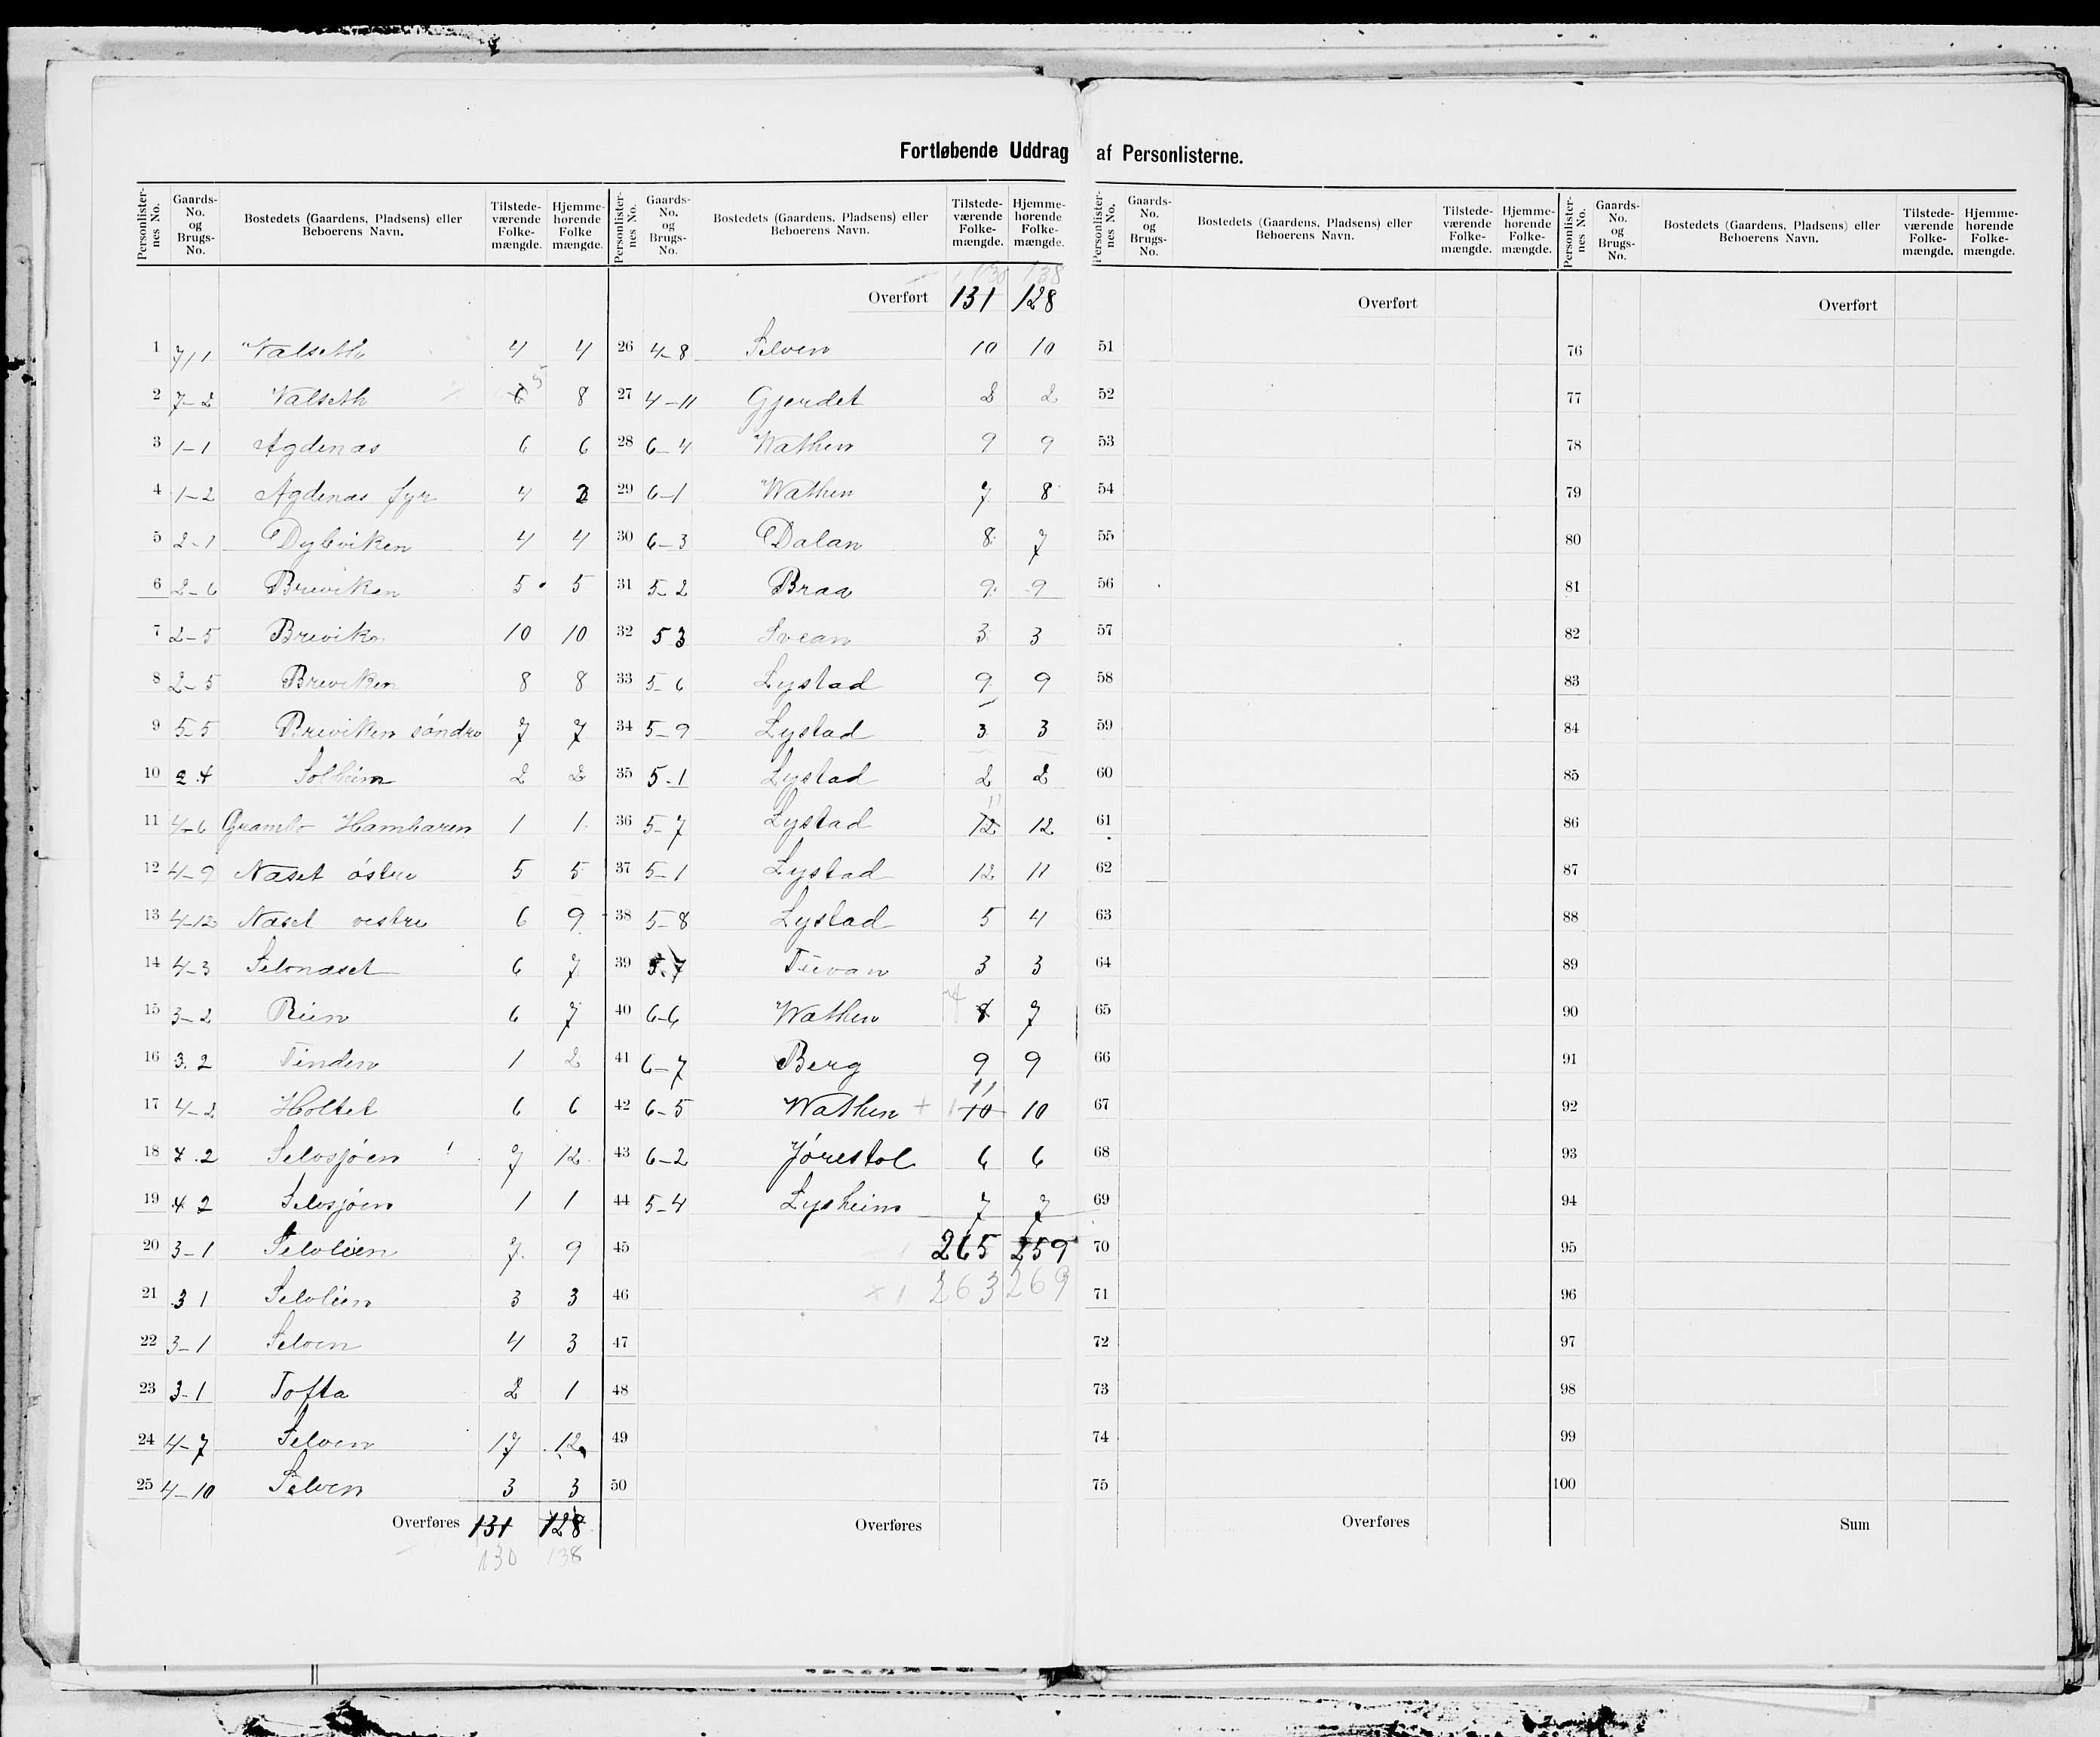 Fortløbende Uddrag af Personlisterne.
Personlisternes No. Gaards-No. og Brugs-No. Bostedets (Gaardens, Pladsens) eller Beboerens Navn. Tilstedeværende Folkemængde. Hjemmehørende Folkemængde.
1 7/1 Valseth 4 4
2 7-2 Valseth 6 5 8
3 1-1 Agdenæs 6 6
4 1-2 Agdenæs fyr 4 2
5 2-1 Dybviken 4 4
6 2-6 Breviken 5 5
7 2-5 Breviken 10 10
8 2-5 Breviken 8 8
9 5-5 Breviken søndre 7 7
10 2.4 Solheim 2 2
11 4-6 Grambo Hamharen 1 1
12 4-9 Næset østre 5 5
13 4-12 Næset vestre 6 9
14 4-3 Selvnæset 6 7
15 3-2 Rien 6 7
16 3.2 Tinden 1 2
17 4-2 Holtet 6 6
18 4.2 Selvsjøen 7 12
19 4 2 Selvsjøen 1 1
20 3-1 Selvlien 7 9
21 3 1 Selvlien 3 3
22 3-1 Selven 4 3
23 3-1 Tofta 2 1
24 4-7 Selven 17 12
25 4-10 Selven 3 3
Overføres 131 128
130 138
Personlisternes No. Gaards-No. og Brugs-No. Bostedets (Gaardens, Pladsens) eller Beboerens Navn. Tilstedeværende Folkemængde. Hjemmehørende Folkemængde.
130 138
Overført 131 128
26 4-8 Selven 10 10
27 4-11 Gjerdet 2 2
28 6-4 Wathen 9 9
29 6-1 Wathen 7 8
30 6-3 Dalan 8 7
31 5-2 Braa 9 9
32 5 3 Svean 3 3
33 5-6 Lystad 9 9
34 5-9 Lystad 3 3
35 5-1 Lystad 2 2
36 5-7 Lystad 12 11 12
37 5-1 Lystad 12 11
38 5-8 Lystad 5 4
39 5.7 Tuvan 3 3
40 6-6 Wathen 8 7
41 6-7 Berg 9 9
42 6-5 Wathen + 10 11 10
43 6-2 Jørestol 6 6
44 5-4 Lysheim 7 7
45 265 259
46 × 1 263 269
47
48
49
50
Overføres
Personlisternes No. Gaards-No. og Brugs-No. Bostedets (Gaardens, Pladsens) eller Beboerens Navn. Tilstedeværende Folkemængde. Hjemmehørende Folkemængde.
Overført
51
52
53
54
55
56
57
58
59
60
61
62
63
64
65
66
67
68
69
70
71
72
73
74
75
Overføres
Personlisternes No. Gaards-No. og Brugs-No. Bostedets (Gaardens, Pladsens) eller Beboerens Navn. Tilstedeværende Folkemængde. Hjemmehørende Folkemængde.
Overført
76
77
78
79
80
81
82
83
84
85
86
87
88
89
90
91
92
93
94
95
96
97
98
99
100
Sum